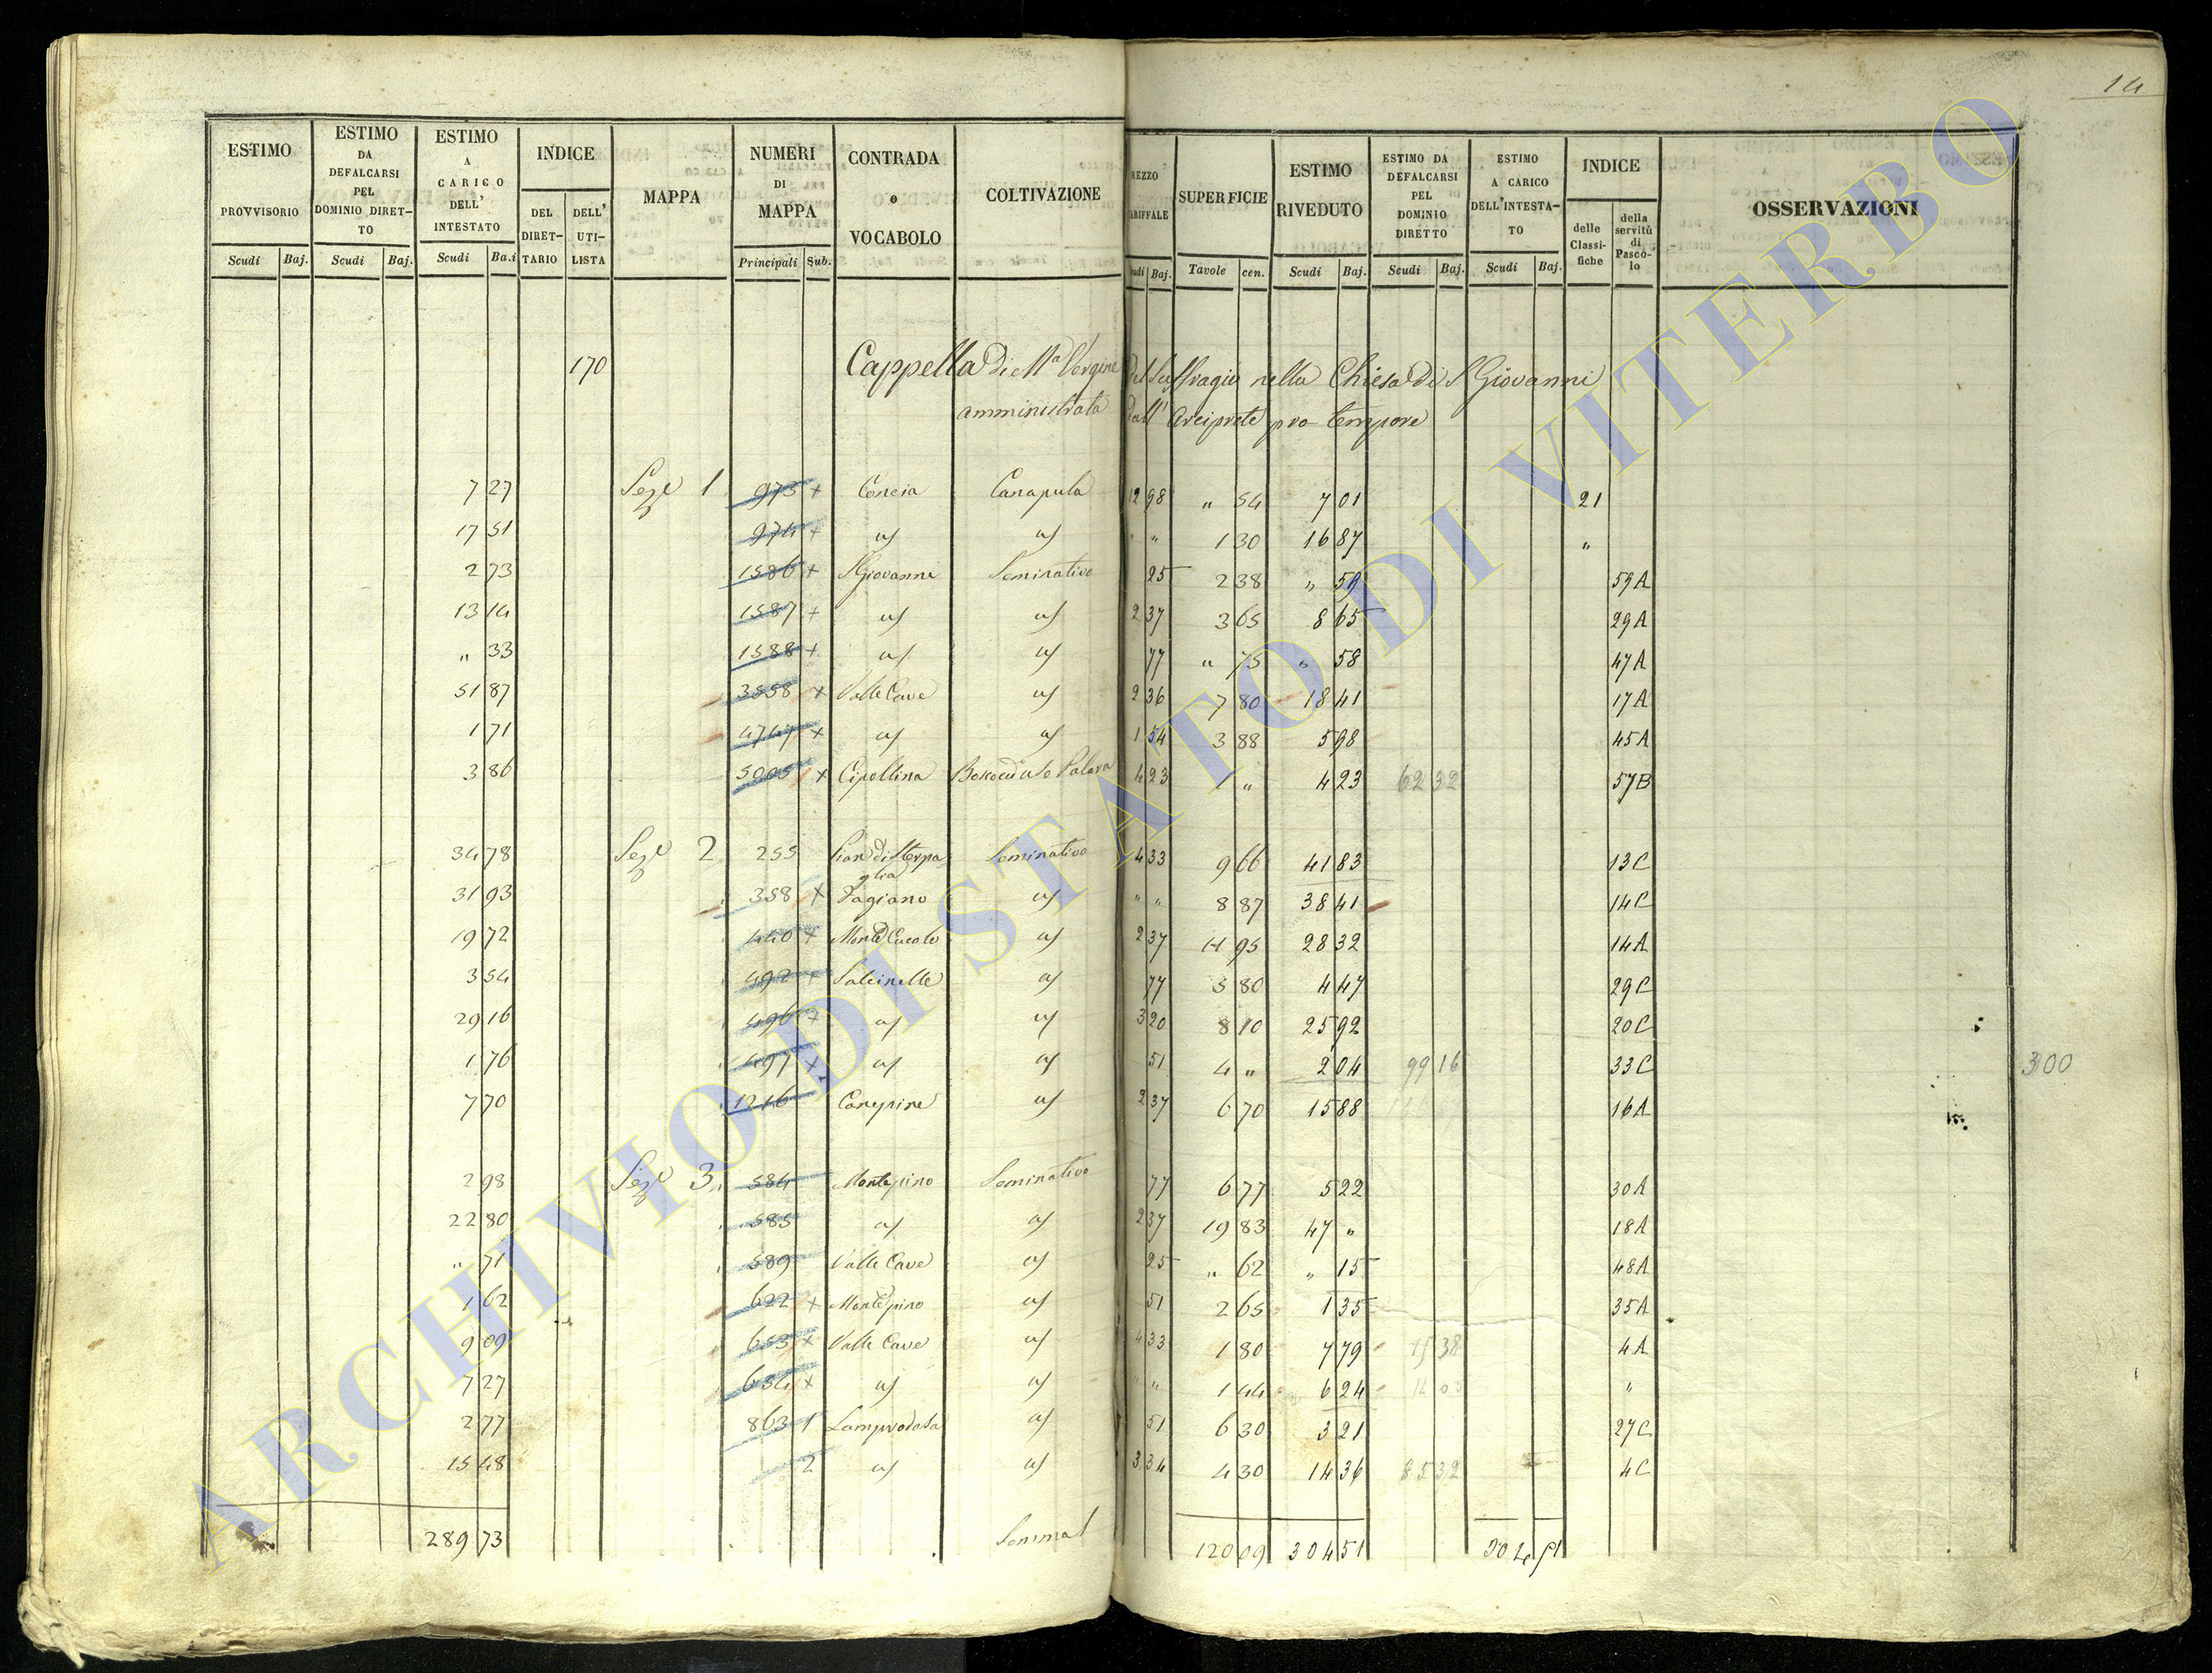 14
ESTIMO PROVVISORIO Scudi Baj. | ESTIMO DA DEFALCARSI PEL DOMINIO DIRETTO Scudi Baj. | ESTIMO A CARICO DELL' INTESTATO Scudi Ba.i | INDICE DEL DIRETTARIO DELL' UTILISTA | MAPPA | NUMERI DI MAPPA Principali Sub. | CONTRADA o VOCABOLO | COLTIVAZIONE | REZZO ARIFFALE udi Baj. | SUPERFICIE Tavole cen. | ESTIMO RIVEDUTO Scudi Baj. | ESTIMO DA DEFALCARSI PEL DOMINIO DIRETTO Scudi Baj. | ESTIMO A CARICO DELL'INTESTATO Scudi Baj. | INDICE delle Classifiche della servitù di Pascolo | OSSERVAZIONI
170 Cappella di Mª Vergine del Suffragio nella Chiesa di S Giovanni
amministrata dall' Arciprete pro tempore
7 27 Sezе 1 973 + Concia Canapula 12 98 " 54 7 01 21
17 51 974 + as as " " 1 30 16 87 "
2 73 1586 + S Giovanni Seminativo 25 2 38 " 59 59A
13 14 1587 + as as 2 37 3 65 8 65 29A
" 33 1588 + as as 77 " 75 " 58 47A
51 87 3558 + Valle Cave as 2 36 7 80 18 41 17A
1 71 4747 + as as 1 54 3 88 5 98 45A
3 86 5005 + Cipollina 4 23 1 " 4 23 62 32 57B
34 78 Sezе 2 255 Pian di Sterpaglia Seminativo 4 33 9 66 41 83 13C
31 93 358 + Fagiano as " " 8 87 38 41 14C
19 72 440 + Monte Cucolo as 2 37 11 95 28 32 14A
3 54 492 + Salcinelle as 77 5 80 4 47 29C
29 16 496 + as as 3 20 8 10 25 92 20C
1 76 497 + as as 51 4 " 2 04 99 16 33C 300
7 70 1216 Canepine as 2 37 6 70 15 88 16A
2 98 Sezе 3 584 Monte pino Seminativo 77 6 77 5 22 30A
22 80 585 as as 2 37 19 83 47 " 18A
" 71 589 Valle Cave as 25 " 62 " 15 48A
1 62 622 + Monte pino as 51 2 65 1 35 35A
9 09 653 + Valle Cave as 4 33 1 80 7 79 38 4A
7 27 654 + as as " " 1 44 6 24 "
2 77 863 1 Lamprodata as 51 6 30 3 21 27C
15 48 2 as as 3 34 4 30 14 36 85 32 4C
289 73 Somma 120 09 304 51 304 51
ARCHIVIO DI STATO DI VITERBO